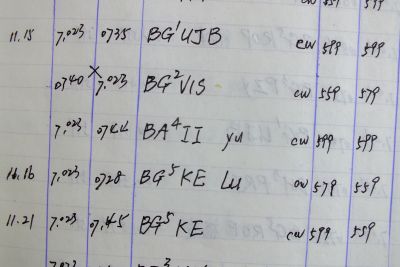 11.15 7.023 0735 BG1UJB cw 599 599
0740 7.023 BG2VIS cw 559 579
7.023 0744 BA4II yu cw 599 599
7.023 0728 BG5KE Lu cw 579 559
11.21 7.023 0745 BG5KE cw 599 559